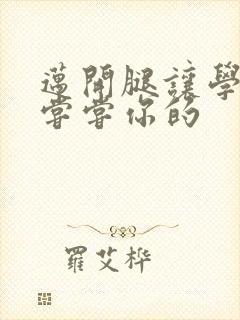 邁開腿讓學
嘗嘗你的
羅艾桦